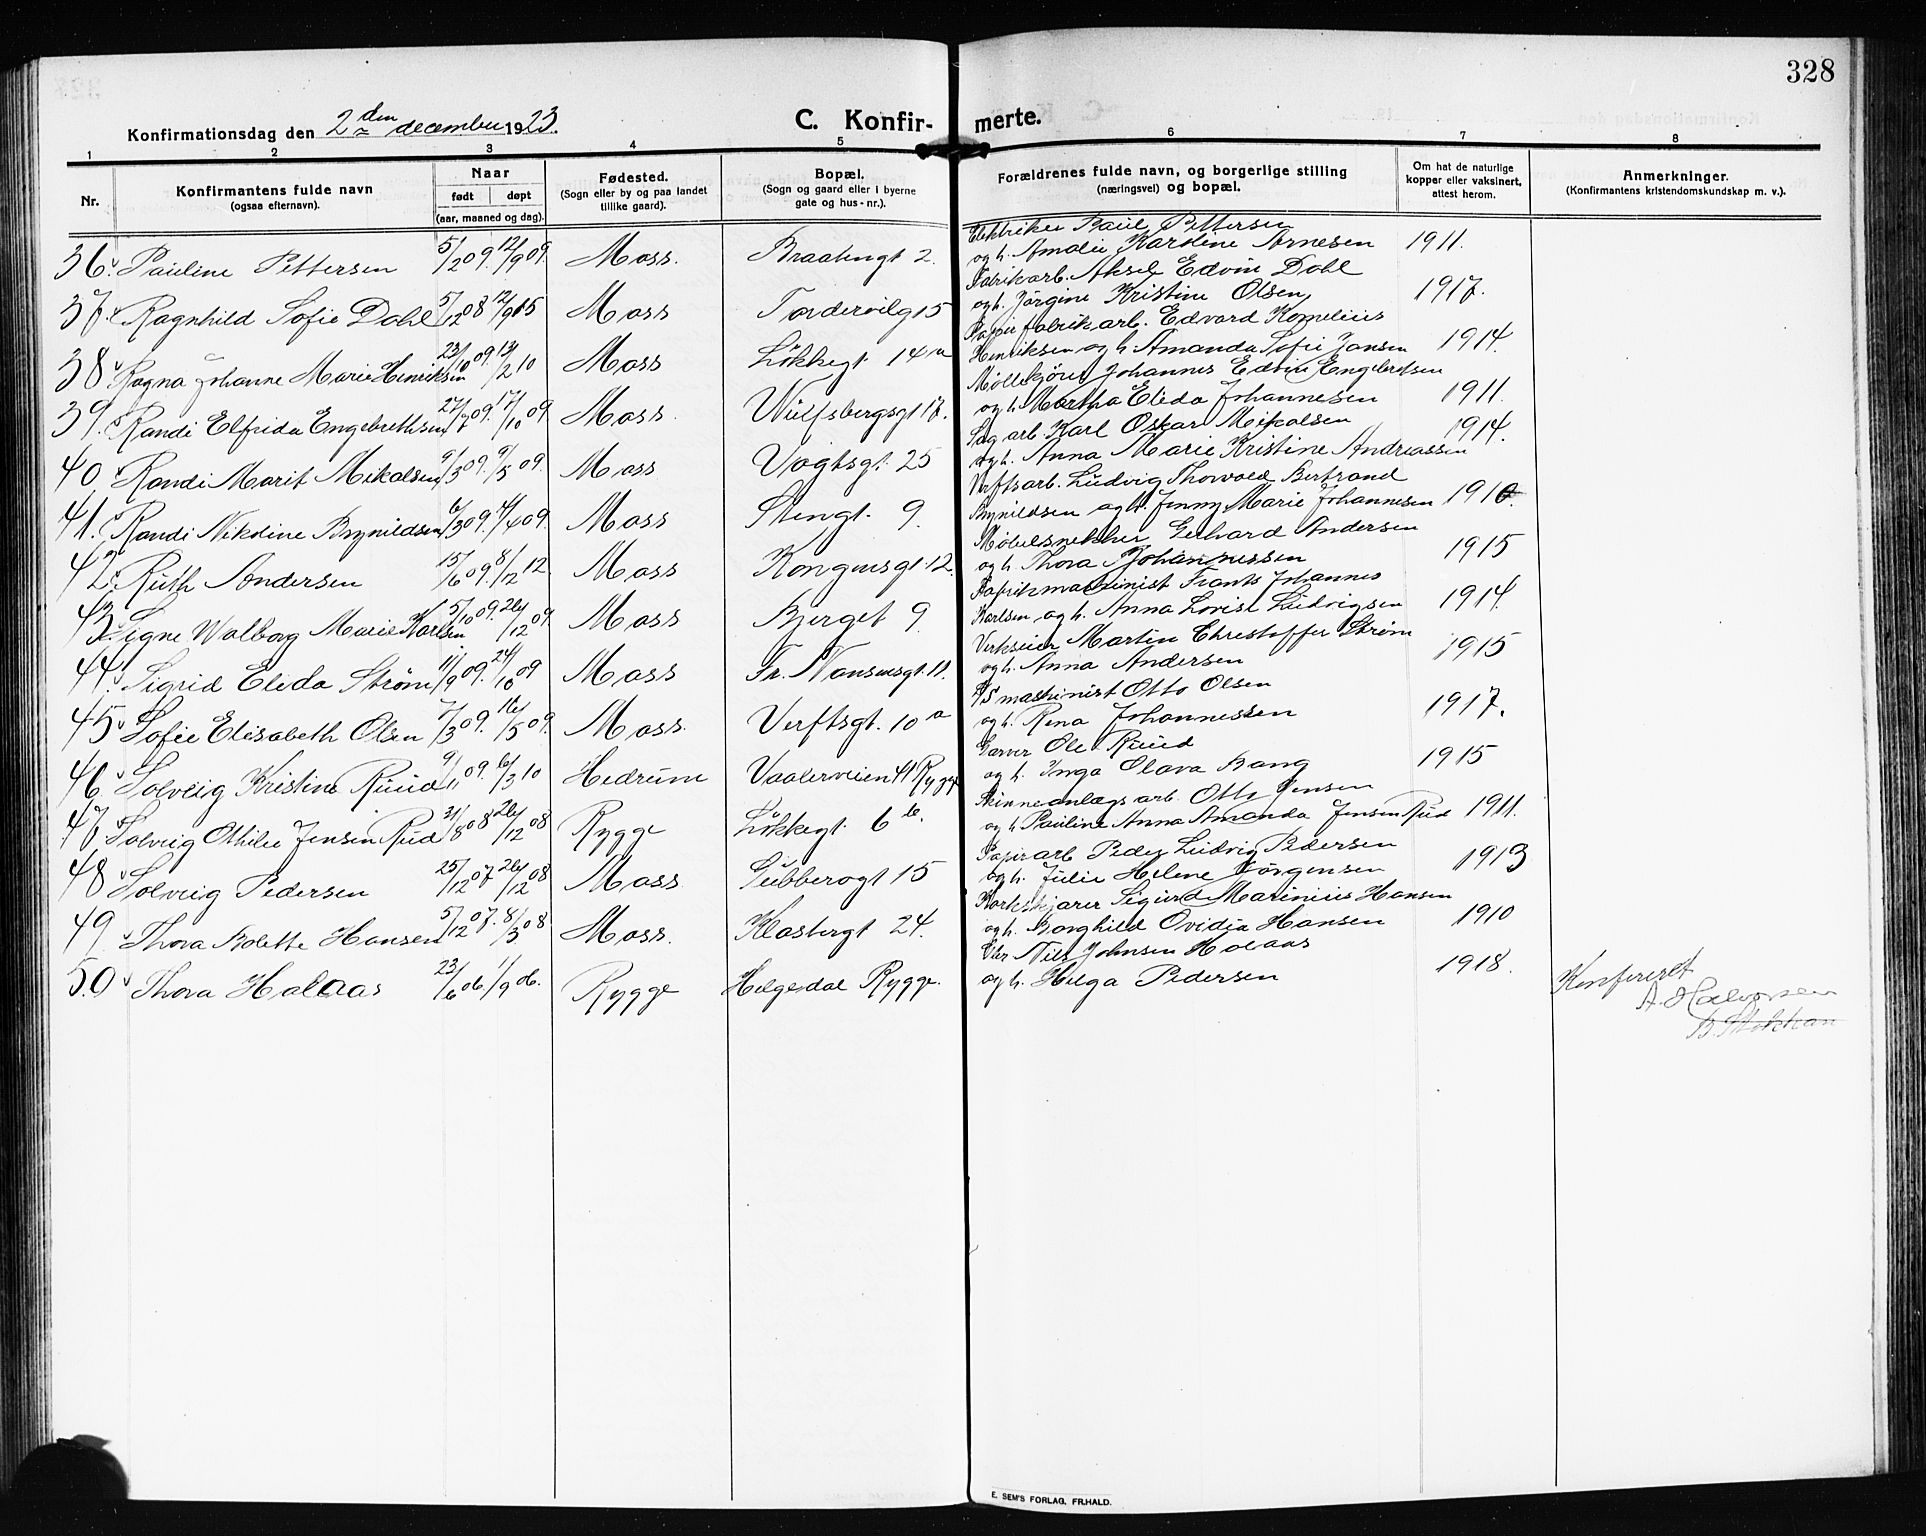 328
Konfirmationsdag den 2den december 1923.
C. Konfir- merte.
1 2 3 4 5 6 7 8
Nr.
Konfirmantens fulde navn
(ogsaa efternavn).
Naar
født døpt
(aar, maaned og dag).
Fødested.
(Sogn eller by og paa landet
tillike gaard).
Bopæl.
(Sogn og gaard eller i byerne
gate og hus-nr.).
Forældrenes fulde navn, og borgerlige stilling
(næringsvei) og bopæl.
Om hat de naturlige
kopper eller vaksinert,
attest herom.
Anmerkninger.
(Konfirmantens kristendomskundskap m. v.).
36. Pauline Pettersen 5/2 09. 12/9 09. Moss. Braatengt 2. Elektriker Paul Pettersen
og h. Amalie Karoline Arnesen 1911.
37. Ragnhild Sofie Dahl 5/12 08 12/9 15 Moss Tordenvilg 15 Fabrikarb. Aksel Edvin Dahl
og h. Jørgine Kristine Olsen 1917.
38. Ragna Johanne Marie Henriksen 23/10 09. 13/2 10 Moss Løkkegt. 14 a Papirfabrikarb. Edvard Kornelius
Henriksen og h. Amanda Sofie Jansen 1914.
39. Randi Elfrida Engebrethsen 27/7 09. 17/10 09. Moss. Wulfsbergsgt 17. Møllekjører Johannes Edvin Engebretsen
og h. Martha Elida Johannesen 1911.
40. Randi Marit Mikalsen 9/3 09. 9/5 09. Moss Vogtsgt. 25 Sag arb. Karl Oskar Mikalsen
og h. Anna Marie Kristine Andreassen 1914.
41. Randi Nikoline Brynildsen 6/3 09. 4/4 09. Moss Stengt. 9. Verftsarb. Ludvig Thorvald Bertrand
Brynildsen og h. Jenny Marie Johannesen 1910.
42. Ruth Andersen 15/6 09. 8/12 12 Moss Kongensgt. 12. Møbelsnekker Gerhard Andersen
og h. Thora Johannessen 1915
43. Signe Walborg Marie Karlsen 5/10 09. 26/12 09. Moss Bjerget 9. Fabrikmaskinist Frants Johannes
Karlsen og h. Anna Lovise Ludvigsen 1914.
44. Sigrid Elida Strøm 11/9 09. 24/10 09 Moss Fr. Nansensgt. 11. Verkseier Martin Christoffer Strøm
og h. Anna Andersen 1915
45. Sofie Elisabeth Olsen 7/3 09. 16/5 09. Moss. Verftsgt. 10 a D/S maskinist Otto Olsen
og h. Rena Johannessen 1917.
46. Solveig Kristine Ruud 9/11 09. 6/3 10 Hedrum Vaalerveien 41 Rygge Garver Ole Ruud
og h. Inga Olava Bang 1915
47. Solveig Othilie Jensen Rud 31/8 08 26/12 08 Rygge Løkkegt. 6 b. Skinneanlægs arb. Otto Jensen
og h. Pauline Anna Amanda Jensen Rud 1911.
48. Solveig Pedersen 25/12 07 26/12 08 Moss Gubberogt 15 Papirarb Peder Ludvig Pedersen
og h. Julie Helene Jörgensen 1913
49. Thora Bolette Hansen 5/12 07. 8/3 08 Moss. Klostergt 24. Korkskjærer Sigurd Marinius Hansen
og h. Borghild Ovidia Hansen 1910
50. Thora Holaas 23/6 06 1/9 06. Rygge Helgerdal Rygge. Nils Johnsen Holaas
og h. Helga Pedersen 1918.
Konfereret
A. Halvorsen
E. SEM'S FORLAG, FR.HALD.